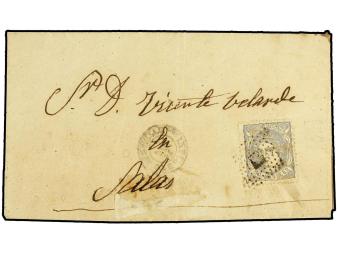 Sr. D. Vicente Velarde
En
Salas